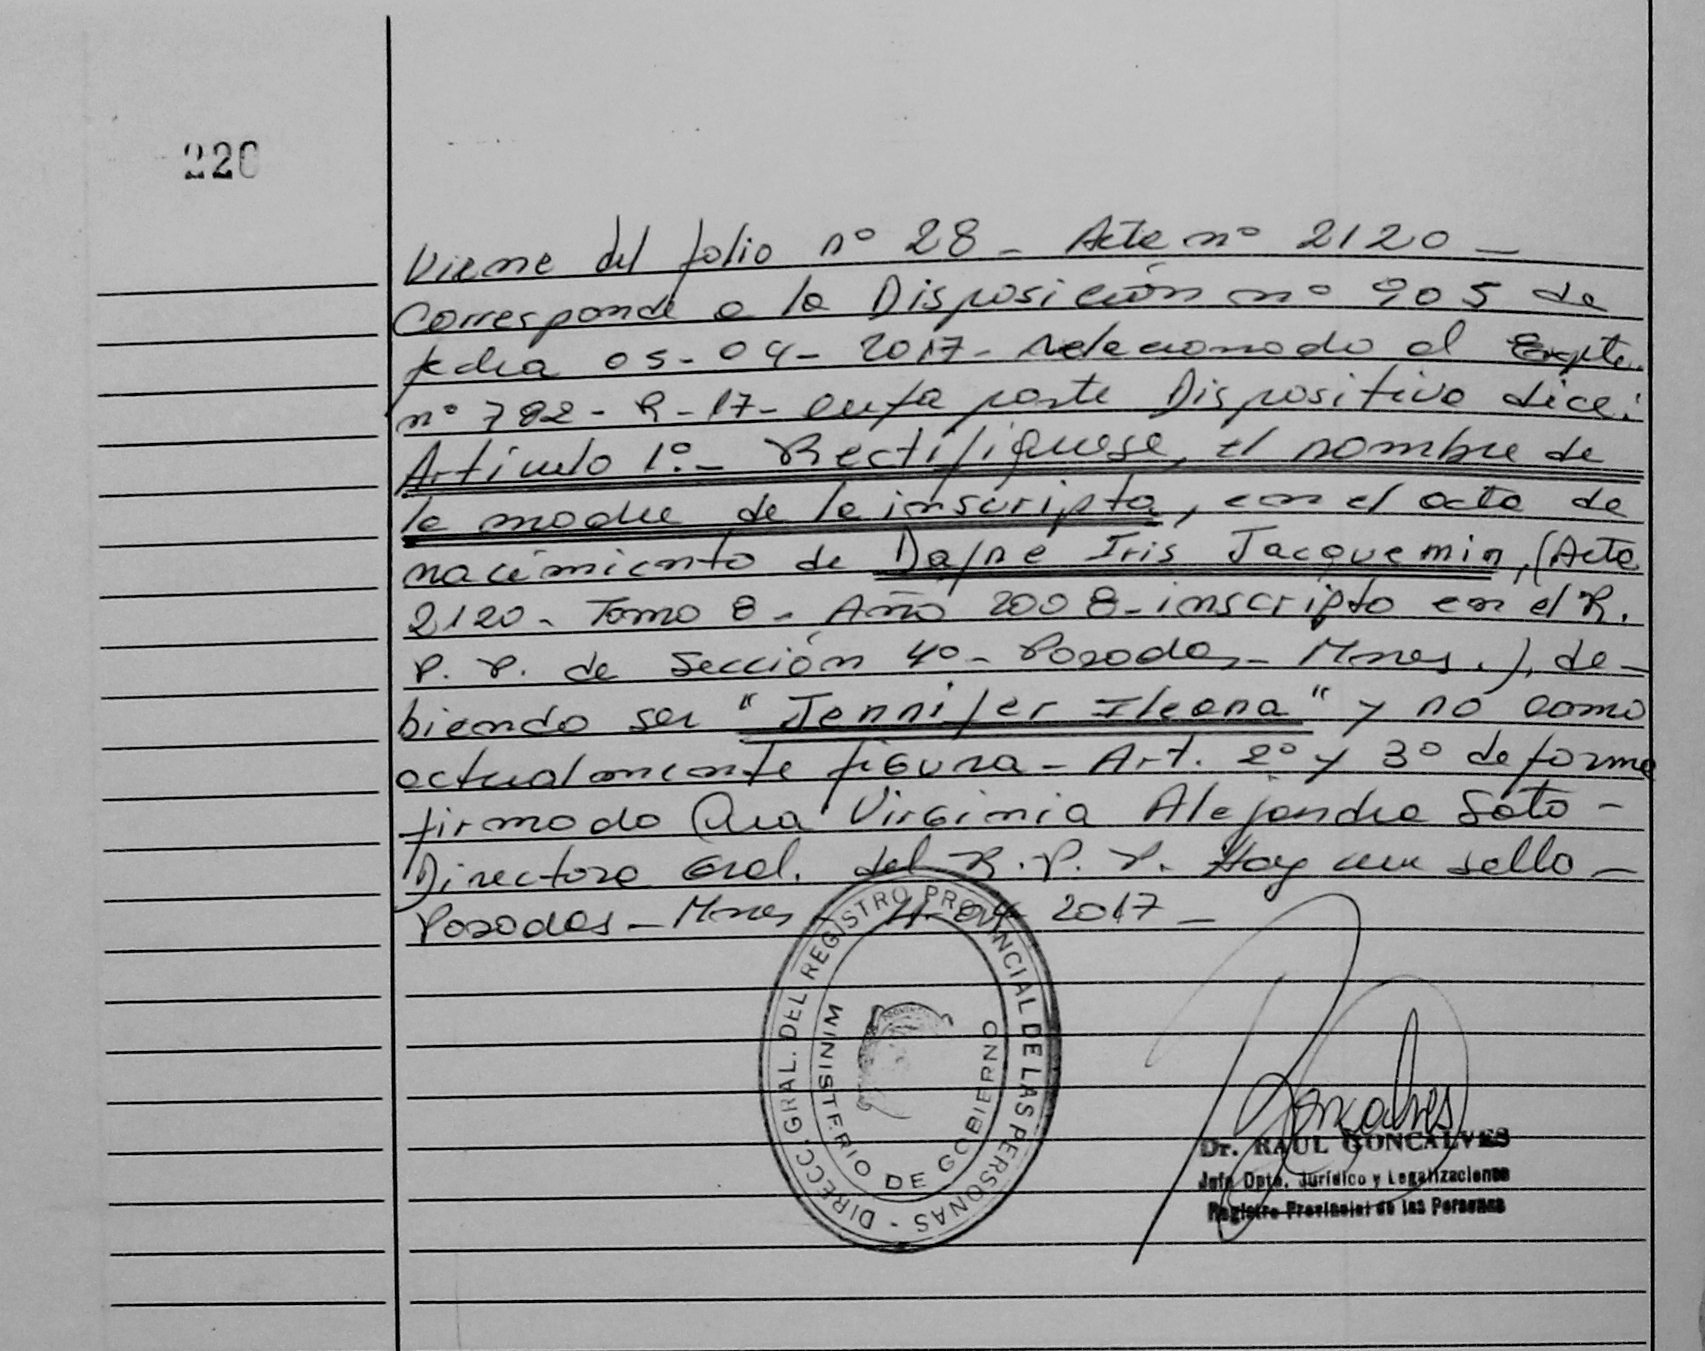 220
Viene del folio nº 28 - Acta nº 2120 -
Corresponde a la Disposición nº 905 de
fecha 05-04-2017- relacionado al Expte.
nº 792-R-17- cuya parte Dispositiva dice:
Artículo 1º.- Rectifíquese, el nombre de
la madre de la inscripta, en el acta de
nacimiento de Dafne Iris Jacquemin, (Acta
2120- Tomo 8- Año 2008-inscripto en el R.
P. P. de Sección 4º- Posadas- Mnes.), de-
biendo ser "Jennifer Ileana" y no como
actualmente figura- Art. 2º y 3º de forma
firmado Dra Virginia Alejandra Soto-
Directora Gral. del R. P. P. Hay un sello-
Posadas- Mnes- 11-04-2017-
DIRECC. GRAL. DEL REGISTRO PROVINCIAL DE LAS PERSONAS -
MINISTERIO DE GOBIERNO
Goncalves
Dr. RAUL GONCALVES
Jefe Dpto. Jurídico y Legalizaciones
Registro Provincial de las Personas